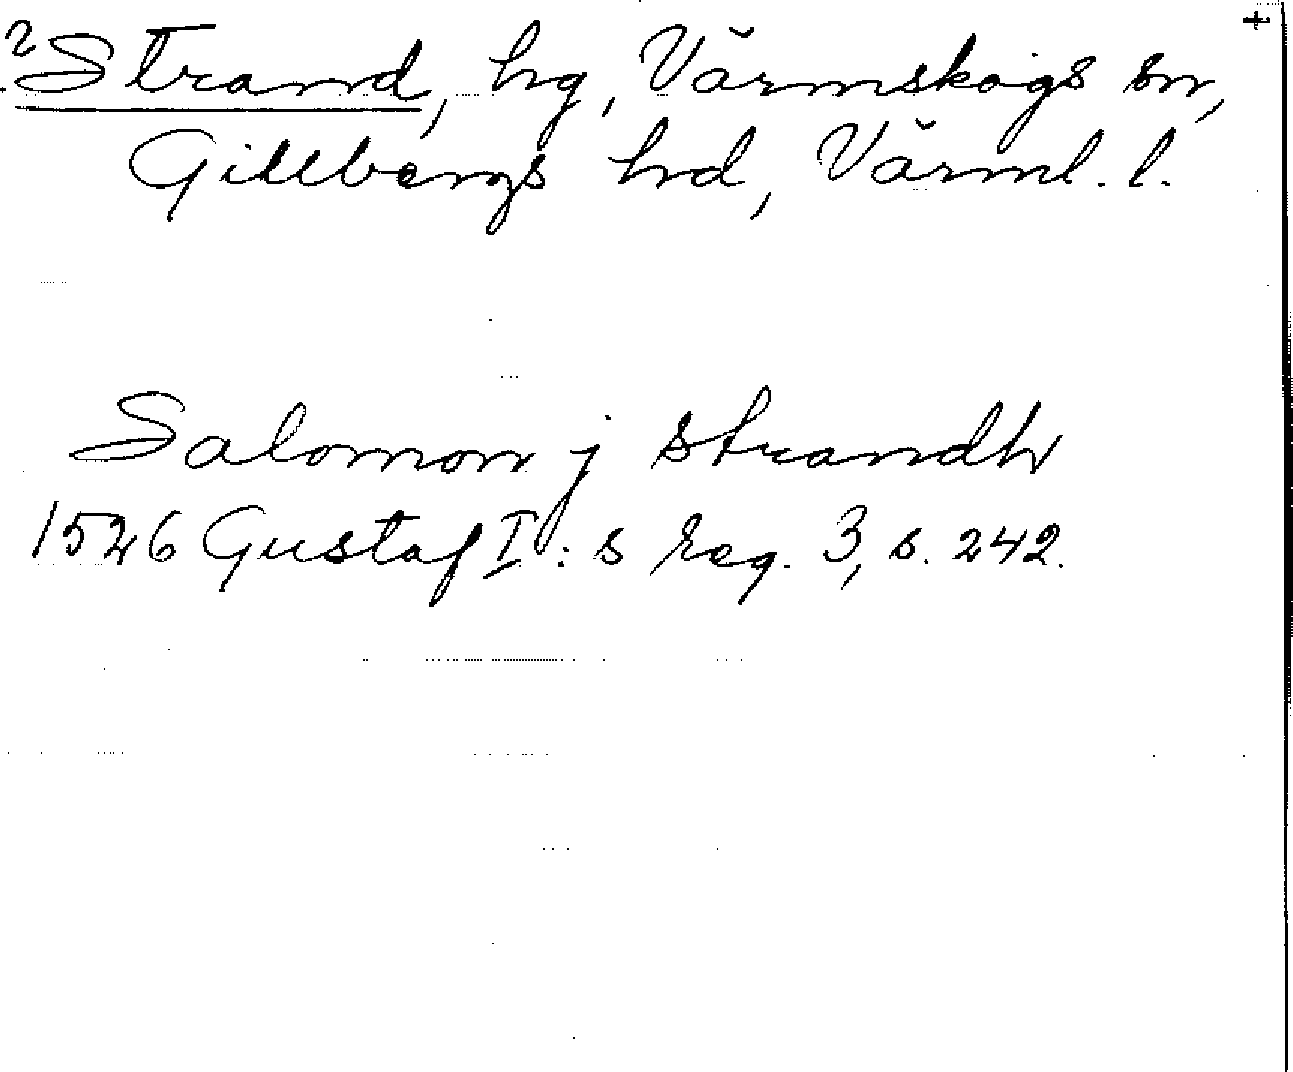 +
2 Strand, hg, Värmskogs sn,
Gillbergs hrd, Värml. l.
Salomon j strandh
1526 Gustaf I:s reg. 3, s. 242.